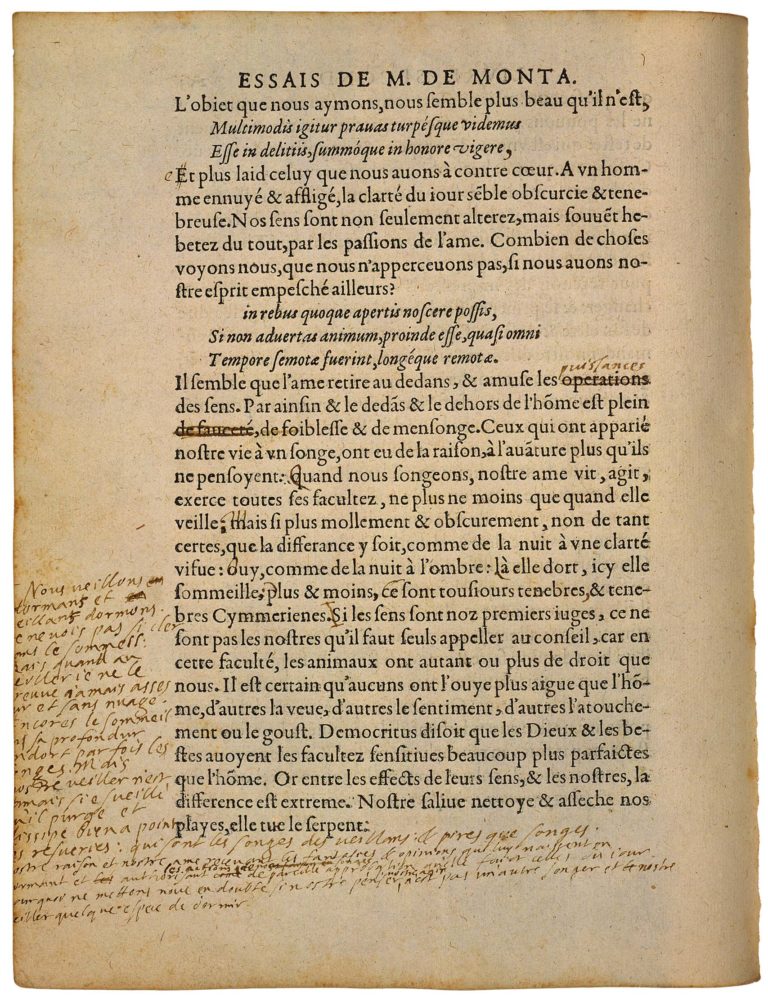 ESSAIS DE M. DE MONTA.
L'obiet que nous aymons, nous semble plus beau qu'il n'est,
Multimodis igitur prauas turpésque videmus
Esse in delitiis, summóque in honore vigere,
Et plus laid celuy que nous auons à contre cœur. A vn hom-
me ennuyé & affligé, la clarté du iour sẽble obscurcie & tene-
breuse. Nos sens sont non seulement alterez, mais souuẽt he-
betez du tout, par les passions de l'ame. Combien de choses
voyons nous, que nous n'apperceuons pas, si nous auons no-
stre esprit empesché ailleurs?
in rebus quoque apertis noscere possis,
Si non aduertas animum, proinde esse, quasi omni
Tempore semotæ fuerint, longéque remotæ.
puissances
Il semble que l'ame retire au dedans, & amuse les operations
des sens. Par ainsin & le dedãs & le dehors de l'hõme est plein
de fauceté, de foiblesse & de mensonge. Ceux qui ont apparié
nostre vie à vn songe, ont eu de la raison, à l'auãture plus qu'ils
ne pensoyent: Quand nous songeons, nostre ame vit, agit,
exerce toutes ses facultez, ne plus ne moins que quand elle
veille; mais si plus mollement & obscurement, non de tant
certes, que la differance y soit, comme de la nuit à vne clarté
vifue: Ouy, comme de la nuit à l'ombre: là elle dort, icy elle
sommeille, plus & moins, ce sont tousiours tenebres, & tene-
bres Cymmerienes. Si les sens sont noz premiers iuges, ce ne
sont pas les nostres qu'il faut seuls appeller au conseil, car en
cette faculté, les animaux ont autant ou plus de droit que
nous. Il est certain qu'aucuns ont l'ouye plus aigue que l'hõ-
me, d'autres la veue, d'autres le sentiment, d'autres l'atouche-
ment ou le goust. Democritus disoit que les Dieux & les be-
stes auoyent les facultez sensitiues beaucoup plus parfaictes
que l'hõme. Or entre les effects de leurs sens, & les nostres, la
difference est extreme. Nostre saliue nettoye & asseche nos
playes, elle tue le serpent:
Nous veillons
dormans et
veillans dormons.
Ie ne vois pas si cler
le sommeil.
mais quand au
veiller ie ne le
treuue iamais asses
pur et sans nuage.
Encores le sommeil
en sa profondur
endort par fois les
songes. Mais
nostre veiller n'est
iamais si esueille
qu'il purge et
dissipe bien a point
les resueries: qui sont les songes des veillans: & pires que songes.
Nostre raison et nostre ame receuant les fantasies & opinions qui luy naissent en
dormant et de pareille approbation qu'elle faict celles du iour
pourquoy ne mettons nous en doubte si nostre penser nostre agir est pas un autre songer et nostre
veiller quelque espece de dormir.